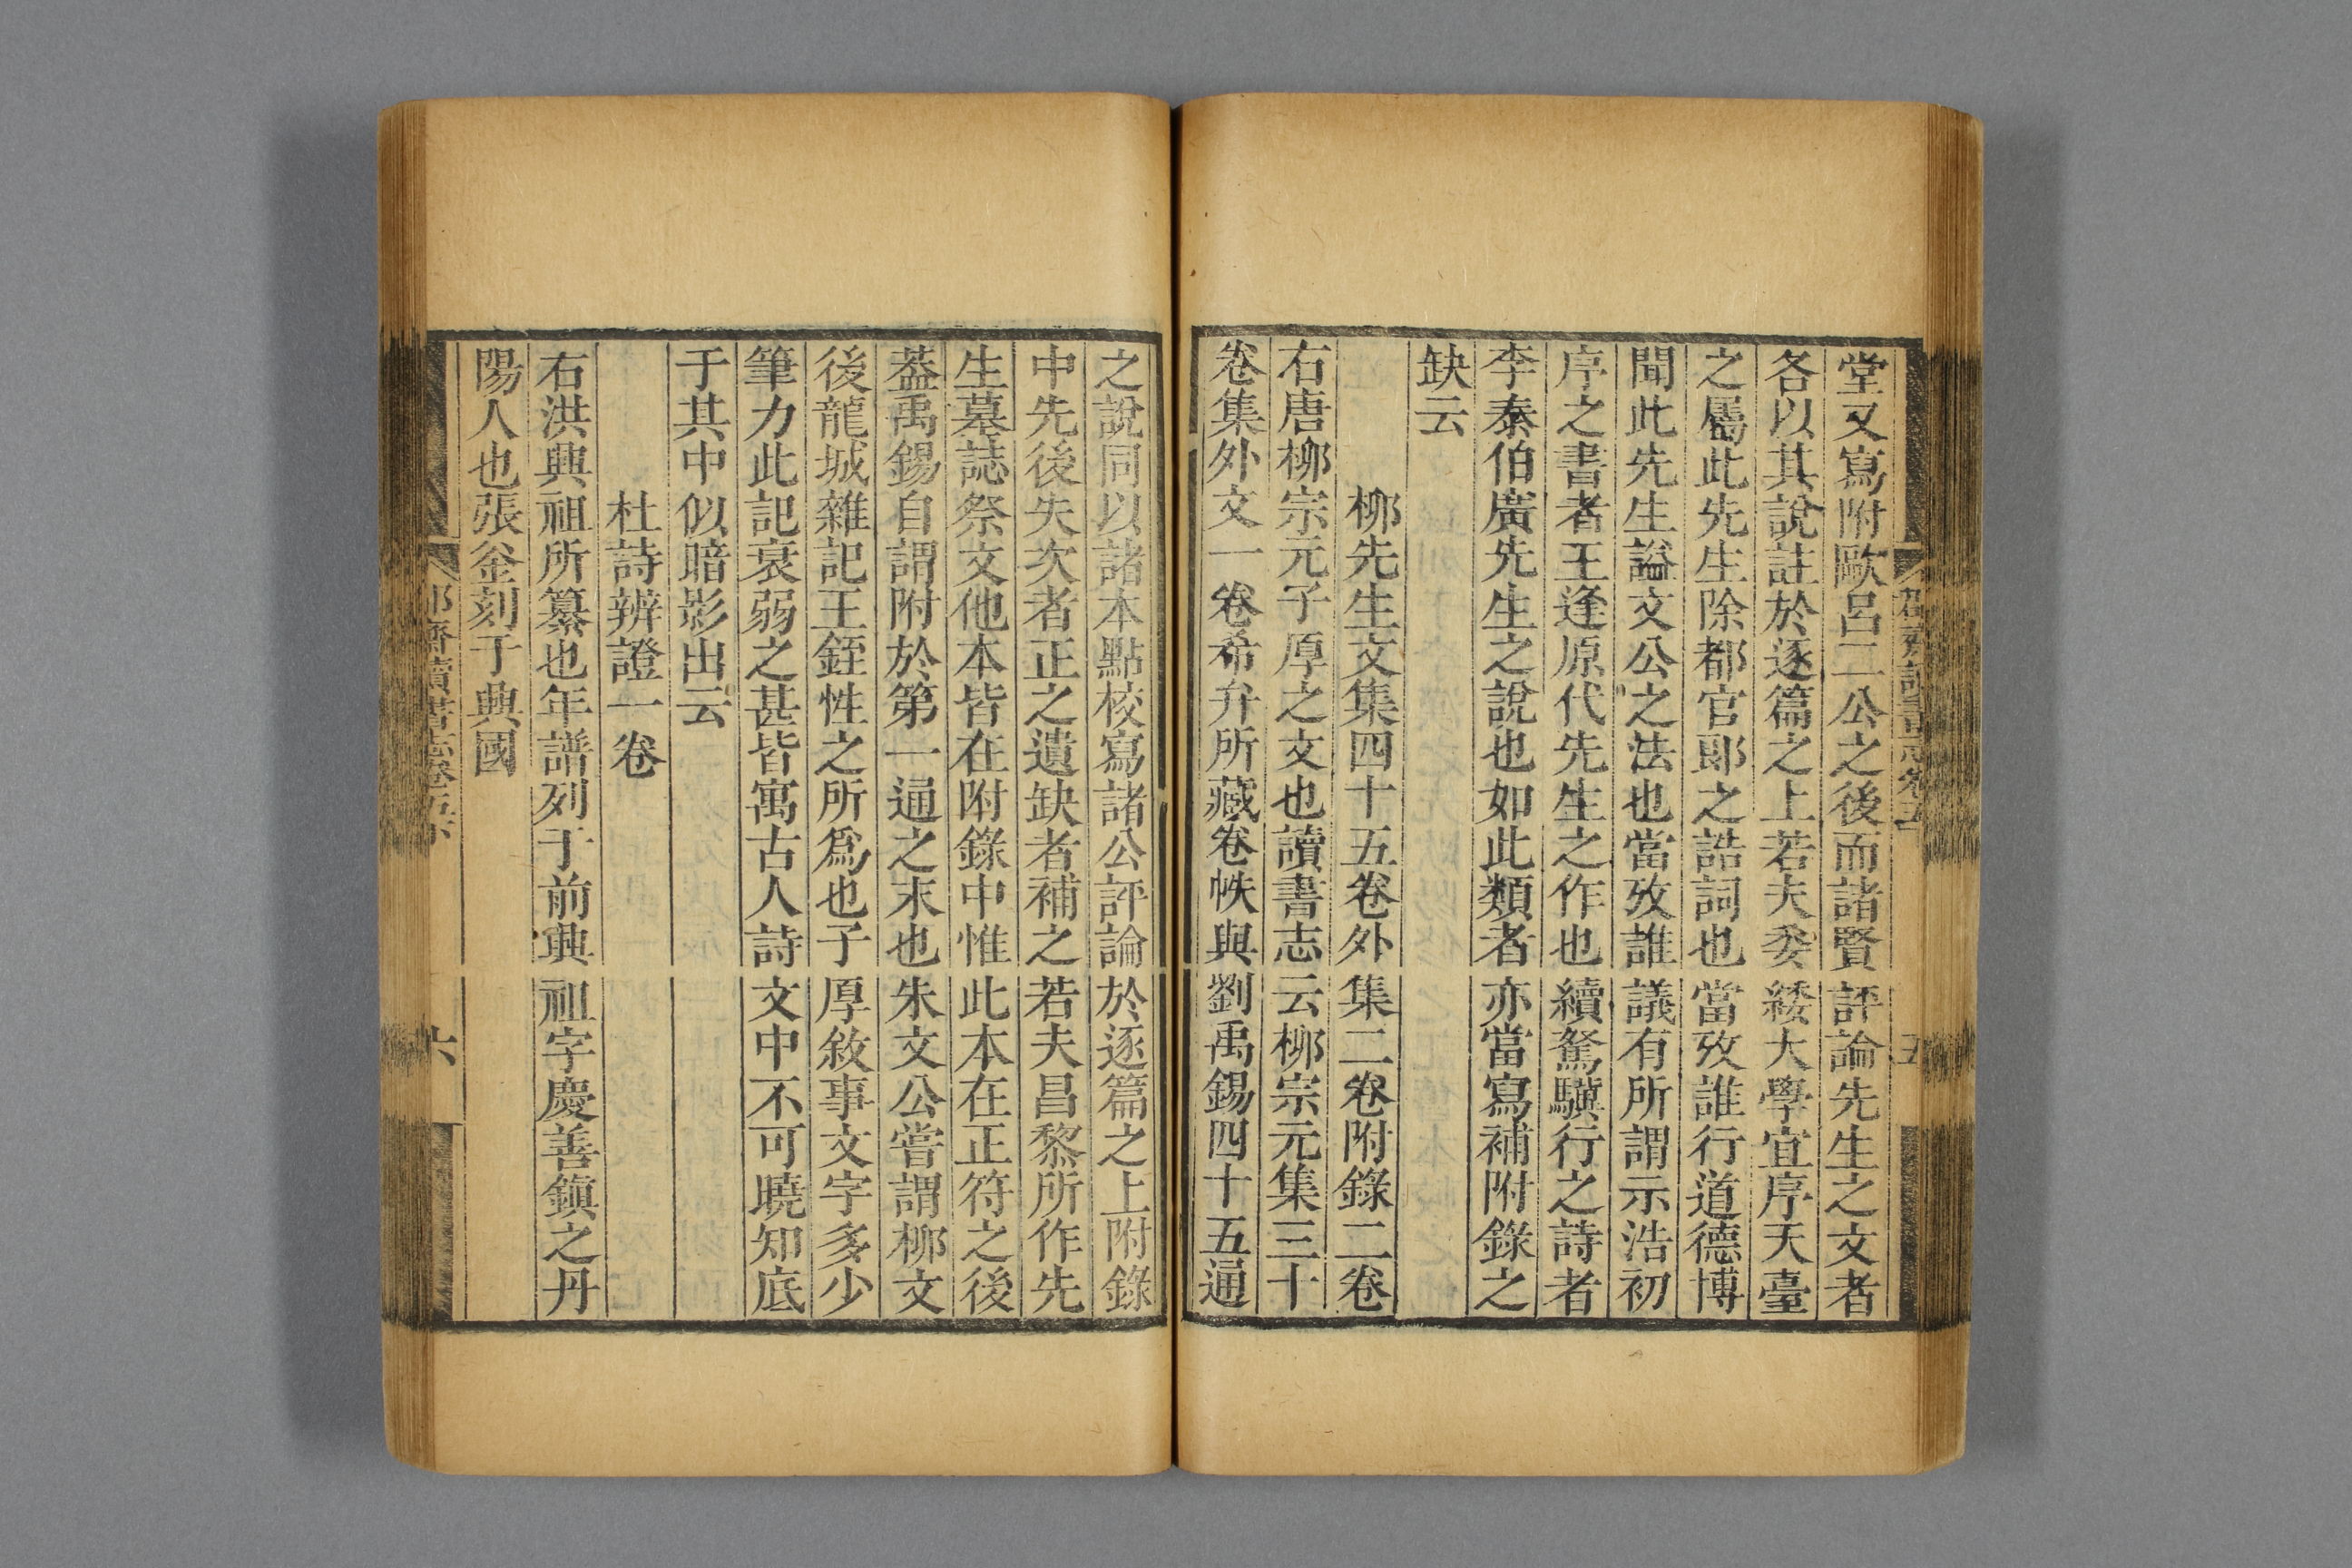 堂又寫附歐呂二公之後而諸賢評論先生之文者
各以其說註於逐篇之上若夫委緌大學宜序天臺
之屬此先生除都官郎之誥詞也當攷誰行道德博
聞此先生諡文公之法也當攷誰議有所謂示浩初
序之書者王逢原代先生之作也續駑驥行之詩者
李泰伯廣先生之說也如此類者亦當寫補附錄之
缺云
柳先生文集四十五卷外集二卷附錄二卷
右唐柳宗元子厚之文也讀書志云柳宗元集三十
卷集外文一卷希弁所藏卷帙與劉禹錫四十五通
之說同以諸本點校寫諸公評論於逐篇之上附錄
中先後失次者正之遺缺者補之若夫昌黎所作先
生墓誌祭文他本皆在附錄中惟此本在正符之後
葢禹錫自謂附於第一通之末也朱文公嘗謂柳文
後龍城雜記王銍性之所爲也子厚敘事文字多少
筆力此記衰弱之甚皆寓古人詩文中不可曉知底
于其中似暗影出云
杜詩辨證一卷
右洪興祖所纂也年譜列于前興祖字慶善鎮之丹
陽人也張釜刻于興國
六